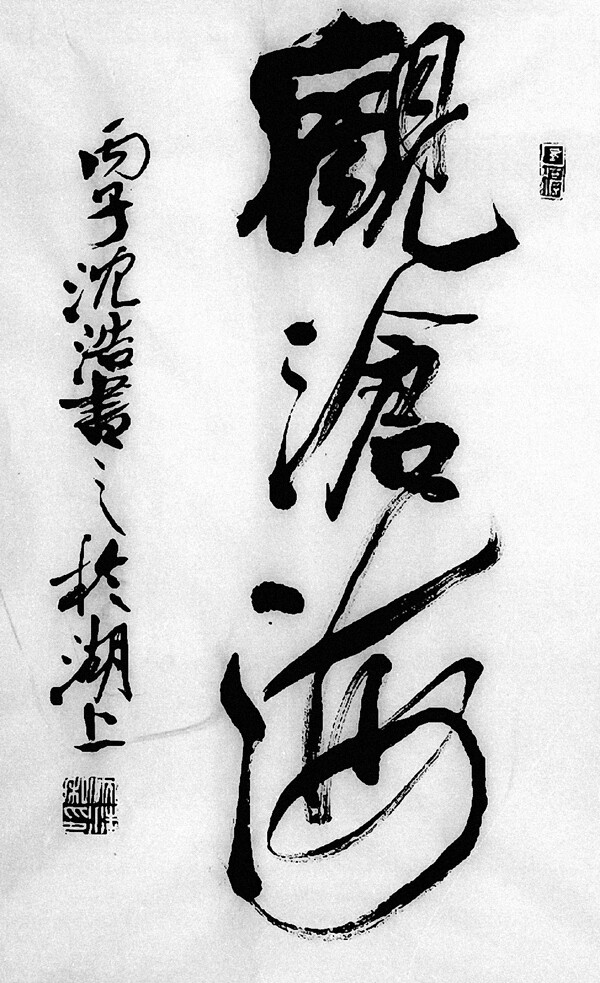 觀滄海
丙子沈浩書之於湖上